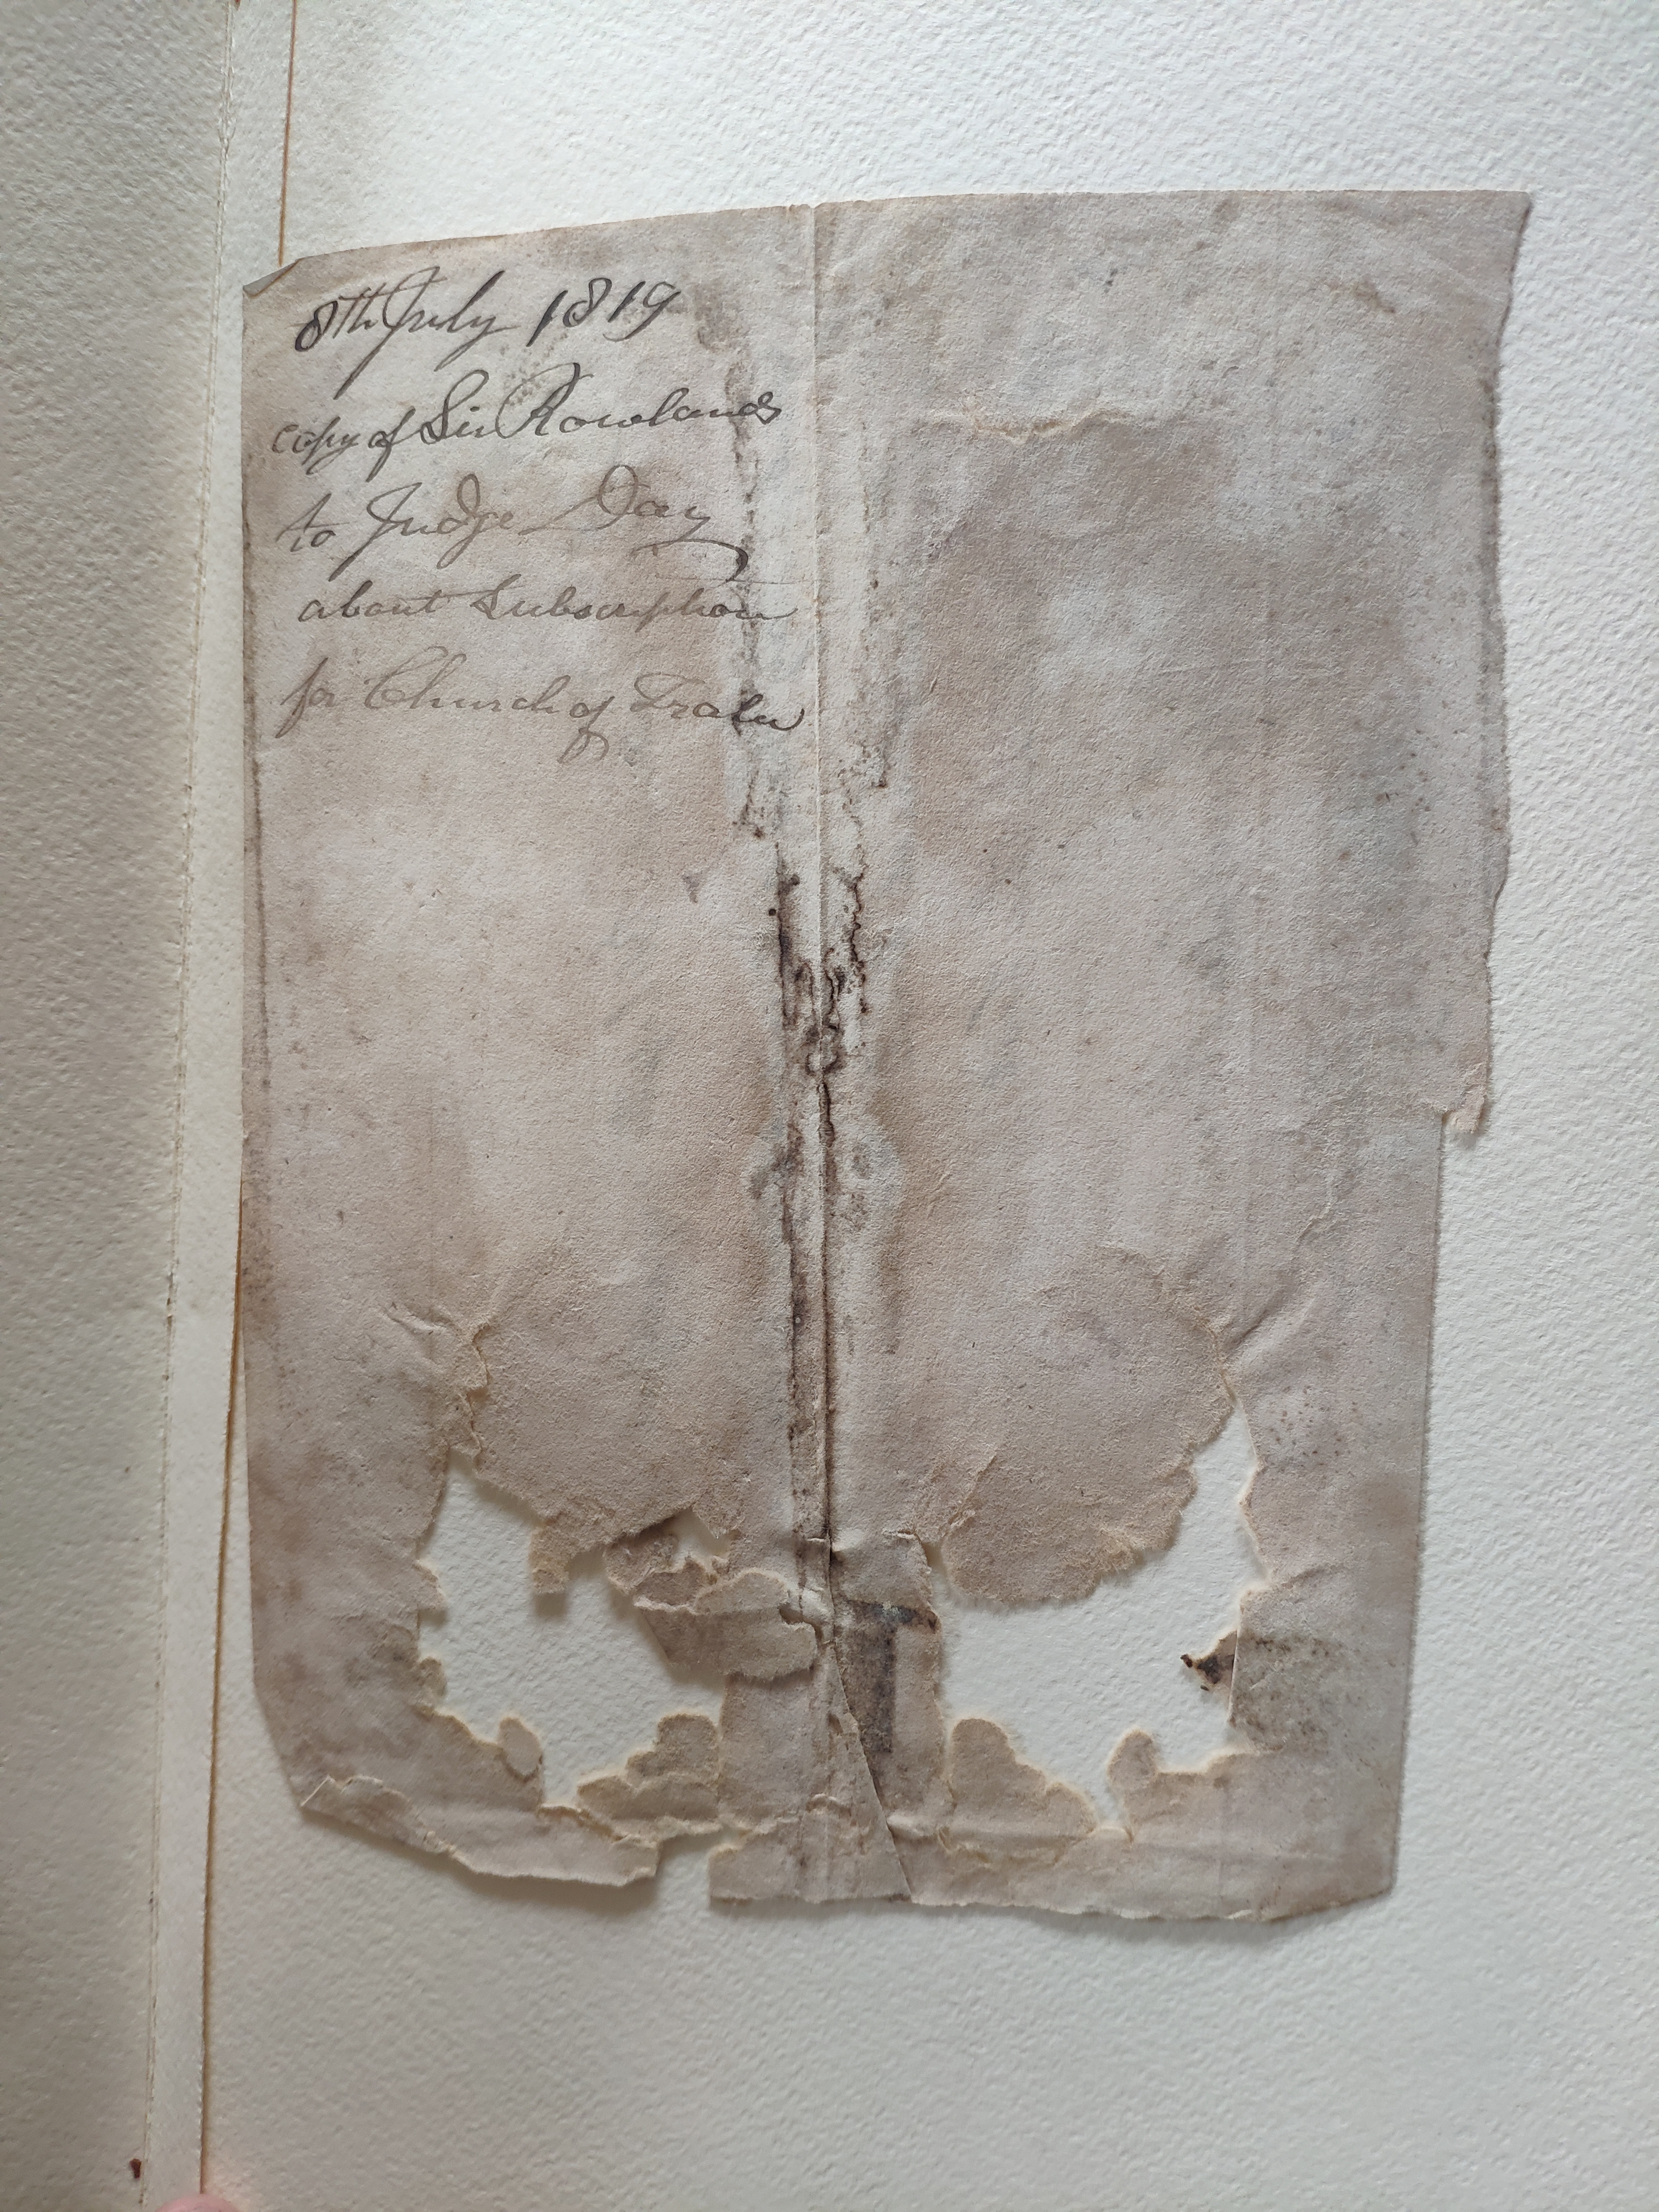 8th July 1819
copy of Sir Rowlands
to Judge Day
about Subscription
for Church of Tralee